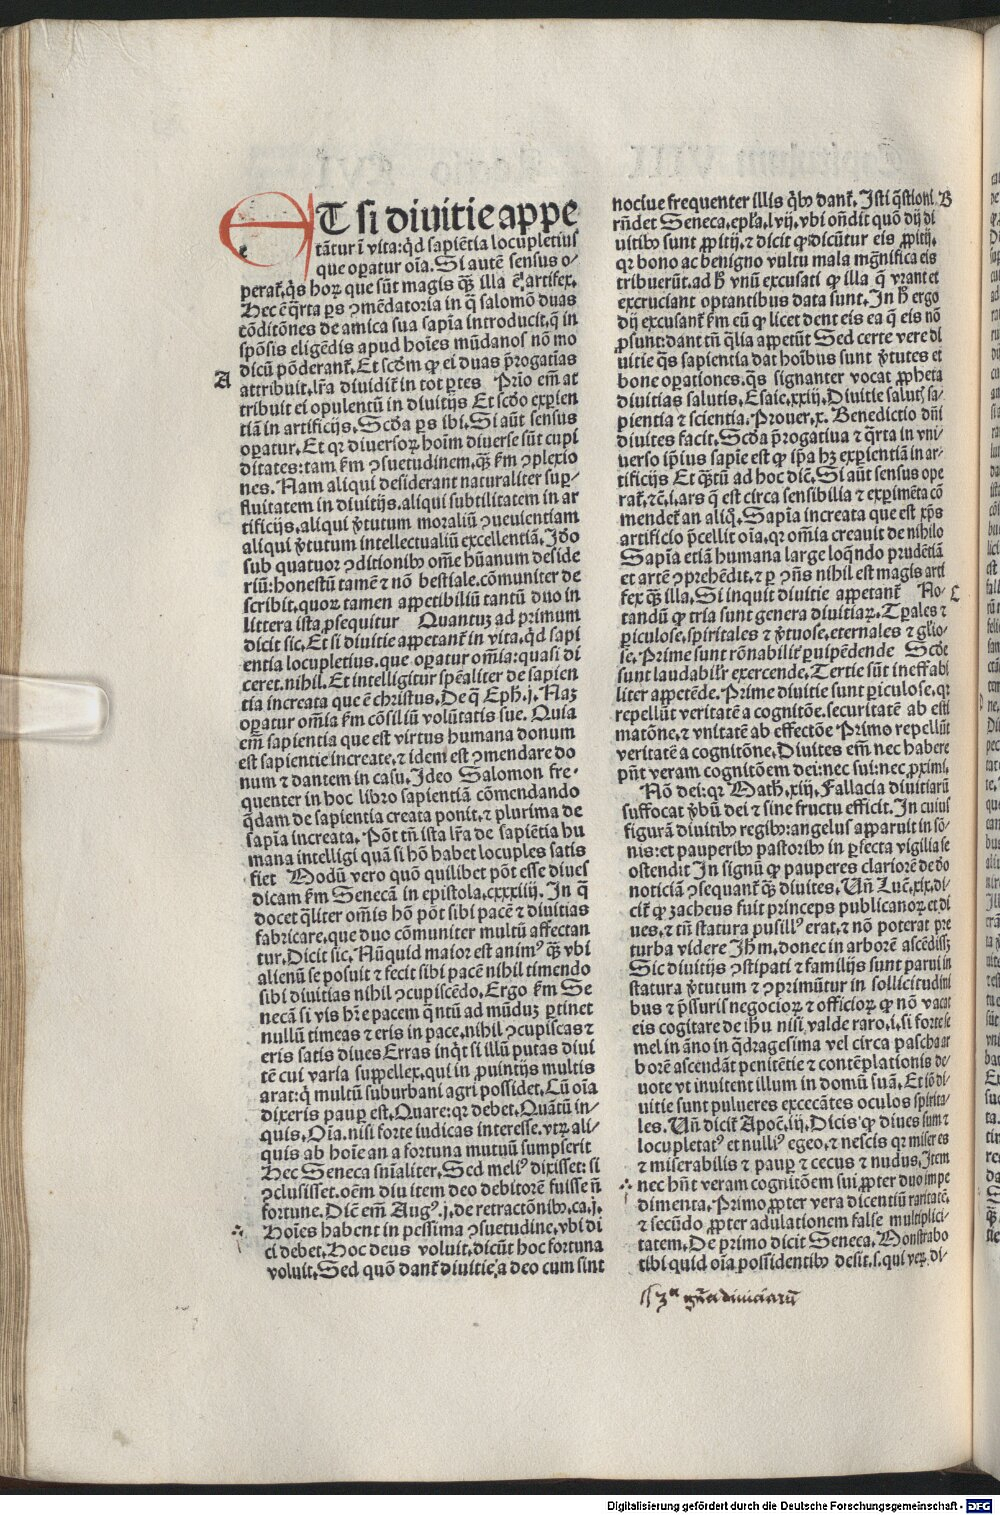 ET si diuitie appe
tãtur ĩ vita: qͥd sapiẽtia locupletius
que oꝑatur oĩa. Si autẽ sensus o⸗
peraẗ. qͥs hoꝝ que sũt magis qͣꝫ illa ẽ artifex.
Hec ẽ qͣrta ꝑs ꝯmẽdatoria in qͣ salomõ duas
cõditõnes de amica sua sapĩa introducit. q̃ in
spõsis eligẽdis apud hoĩes mũdanos nõ mo
dicũ põderanẗ. Et scd̾m ꝙ ei duas p̃rogatias
A attribuit. lr̃a diuidiẗ in tot ꝑtes Prĩo em̃ at
tribuit ei opulentũ in diuitijs Et scd̾o experien
tiã in artificijs. Scd̾a ꝑs ibi. Si aũt sensus
oꝑatur. Et qꝛ diuersoꝝ hoĩm diuerse sũt cupi
ditates: tam ẜm ꝯsuetudinem. qͣꝫ ẜm ꝯplexio
nes. Nam aliqui desiderant naturaliter suꝑ⸗
fluitatem in diuitijs. aliqui subtilitatem in ar
tificijs. aliqui v̾tutum moraliũ ꝯueuientiam
aliqui v̾tutum intellectualiũ excellentiã. Id̾o
sub quatuor ꝯditionibꝰ om̃e hũanum deside
riũ: honestũ tamẽ ⁊ nõ bestiale. cõmuniter de
scribit. quoꝝ tamen appetibiliũ tantũ duo in
littera ista ꝓsequitur Quantuꝫ ad primum
dicit sic. Et si diuitie appetanẗ in vita. qͥd sapi
entia locupletius. que oꝑatur om̃ia: quasi di
ceret. nihil. Et intelligitur spẽaliter de sapien
tia increata que ẽ christus. De q̃ Eph. j. Naꝫ
oꝑatur om̃ia ẜm cõsiliũ volũtatis sue. Quia
em̃ sapientia que est virtus humana donum
est sapientie increate. ⁊ idem est ꝯmendare do
num ⁊ dantem in casu. Ideo Salomon fre⸗
quenter in hoc libro sapientiã cõmendando
qͣdam de sapientia creata ponit. ⁊ plurima de
sapĩa increata. Põt tñ ista lr̃a de sapiẽtia hu
mana intelligi quã si hõ habet locuples satis
fiet Modũ vero quo quilibet põt esse diues
dicam ẜm Senecã in epistola. cxxxiiij. In q̃
docet qͣliter om̃is hõ põt sibi pacẽ ⁊ diuitias
fabricare. que duo cõmuniter multũ affectan
tur. Dicit sic. Nũquid maior est animꝰ qͣꝫ vbi
alienũ se posuit ⁊ fecit sibi pacẽ nihil timendo
sibi diuitias nihil ꝯcupiscẽdo. Ergo ẜm Se
necã si vis hr̃e pacem qͣntũ ad mũduꝫ ꝑtinet
nullũ timeas ⁊ eris in pace. nihil ꝯcupiscas ⁊
eris satis diues Erras inqͥt si illũ putas diui
tẽ cui varia suppellex. qui in ꝓuintijs multis
arat: q̃ multũ suburbani agri possidet. Cũ oĩa
dixeris pauꝑ est. Quare: qꝛ debet. Quãtũ in⸗
quis. Oĩa. nisi forte iudicas interesse. vtꝝ ali⸗
quis ab hoĩe an a fortuna mutuũ sumpserit
Hec Seneca sniãliter. Sed meliꝰ dixisset: si
ꝯclusisset. oẽm diuitem deo debitorẽ fuisse ñ
fortune. Diẽ em̃ Augꝰ. j. de retractõnibꝰ. ca. j.
Hoĩes habent in pessima ꝯsuetudine. vbi di
ci debet. Hoc deus voluit. dicũt hoc fortuna
voluit. Sed quõ danẗ diuitie a deo cum sint
nociue frequenter illis qͥbꝰ danẗ. Isti q̃stioni B
rñdet Seneca. epl̃a. lvij. vbi oñdit quõ dij di
uitibꝰ sunt ꝓpitij. ⁊ dicit ꝙ dicũtur eis ꝓpitij.
qꝛ bono ac benigno vultu mala mg̃nifica eis
tribuerũt. ad h̾ vnũ excusati ꝙ illa q̃ vrant et
excruciant optantibus data sunt. In h̾ ergo
dij excusanẗ ẜm eũ ꝙ licet dent eis ea q̃ eis nõ
ꝓsunt: dant tñ qͣlia appetũt Sed certe vere di
uitie qͣs sapientia dat hoĩbus sunt v̾tutes et
bone oꝑationes. qͣs signanter vocat ꝓpheta
diuitias salutis. Esaie. xxiij. Diuitie saluẗ sa⸗
pientia ⁊ scientia. Prouer. x. Benedictio dñi
diuites facit. Scd̾a p̃rogatiua ⁊ qͣrta in vni⸗
uerso ip̃ius sapĩe est ꝙ ip̃a hꝫ exꝑientiã in ar⸗
tificijs Et qͣꝫtũ ad hoc diẽ. Si aũt sensus ope
raẗ. ⁊c̃. i. ars q̃ est circa sensibilia ⁊ exꝑimẽta cõ
mendeẗ an aliqͣ. Sapĩa increata que est xp̃s
artificio p̃cellit oĩa. qꝛ om̃ia creauit de nihilo
Sapĩa etiã humana large loq̃ndo prudẽtiã
et artẽ ꝯprehẽdit. ⁊ ꝑ ꝯñs nihil est magis arti
fex qͣꝫ illa. Si inquit diuitie appetanẗ No⸗ C
tandũ ꝙ tria sunt genera diuitiaꝝ. Tꝑales ⁊
ꝑiculose. spiritales ⁊ v̾tuose. eternales ⁊ gl̃io⸗
se. Prime sunt rõnabiliẗ ꝑuipẽdende Scd̾e
sunt laudabilĩr exercende. Tertie sũt ineffabi
liter appetẽde. Prime diuitie sunt ꝑiculose. qꝛ
repellũt veritatẽ a cognitõe. securitatẽ ab esti
matõne. ⁊ vnitatẽ ab effectõe Primo repellũt
veritatẽ a cognitõne. Diuites em̃ nec habere
pñt veram cognitõem dei: nec sui: nec ꝓximi.
Nõ dei: qꝛ Math. xiij. Fallacia diuitiarũ
suffocat v̾bũ dei ⁊ sine fructu efficit. In cuius
figurã diuitibꝰ regibꝰ: angelus apparuit in sõ⸗
nis: et pauperibꝰ pastoribꝰ in ꝑfecta vigilia se
ostendit In signũ ꝙ pauperes clariorẽ de d̾o
noticiã ꝯsequanẗ qͣꝫ diuites. Uñ Luc̃. xix. di⸗
ciẗ ꝙ zacheus fuit princeps publicanoꝝ et di
ues. ⁊ tñ statura pusillꝰ erat. ⁊ nõ poterat pre
turba videre Ih̃m. donec in arborẽ ascẽdissꝫ
Sic diuitijs ꝯstipati ⁊ familijs sunt parui in
statura v̾tutum ⁊ ꝯprimũtur in sollicitudini
bus ⁊ p̃ssuris negocioꝝ ⁊ officioꝝ ꝙ nõ vacat
eis cogitare de ih̃u nisi valde raro. i. si forte se
mel in ãno in qͣdragesima vel circa pascha ar
borẽ ascendãt penitẽtie ⁊ contẽplationis de⸗
uote vt inuitent illum in domũ suã. Et iõ di⸗
uitie sunt pulueres excecãtes oculos spirita⸗
les. Uñ diciẗ Apoc̃. iij. Dicis ꝙ diues sum ⁊
locupletatꝰ et nulliꝰ egeo. ⁊ nescis qꝛ miser es
⁊ miserabilis ⁊ pauꝑ ⁊ cecus ⁊ nudus. Item
nec hñt veram cognitõem sui ꝓpter duo impe
dimenta. Primo ꝓpter vera dicentiũ raritatẽ.
⁊ secũdo ꝓpter adulationem false multiplici⸗
tatem. De primo dicit Seneca. Monstrabo
tibi quid oĩa possidentibꝰ desit. s. qui veꝝ di⸗
3ᵃ gñea diuiciarũ
Digitalisierung gefördert durch die Deutsche Forschungsgemeinschaft - DFG